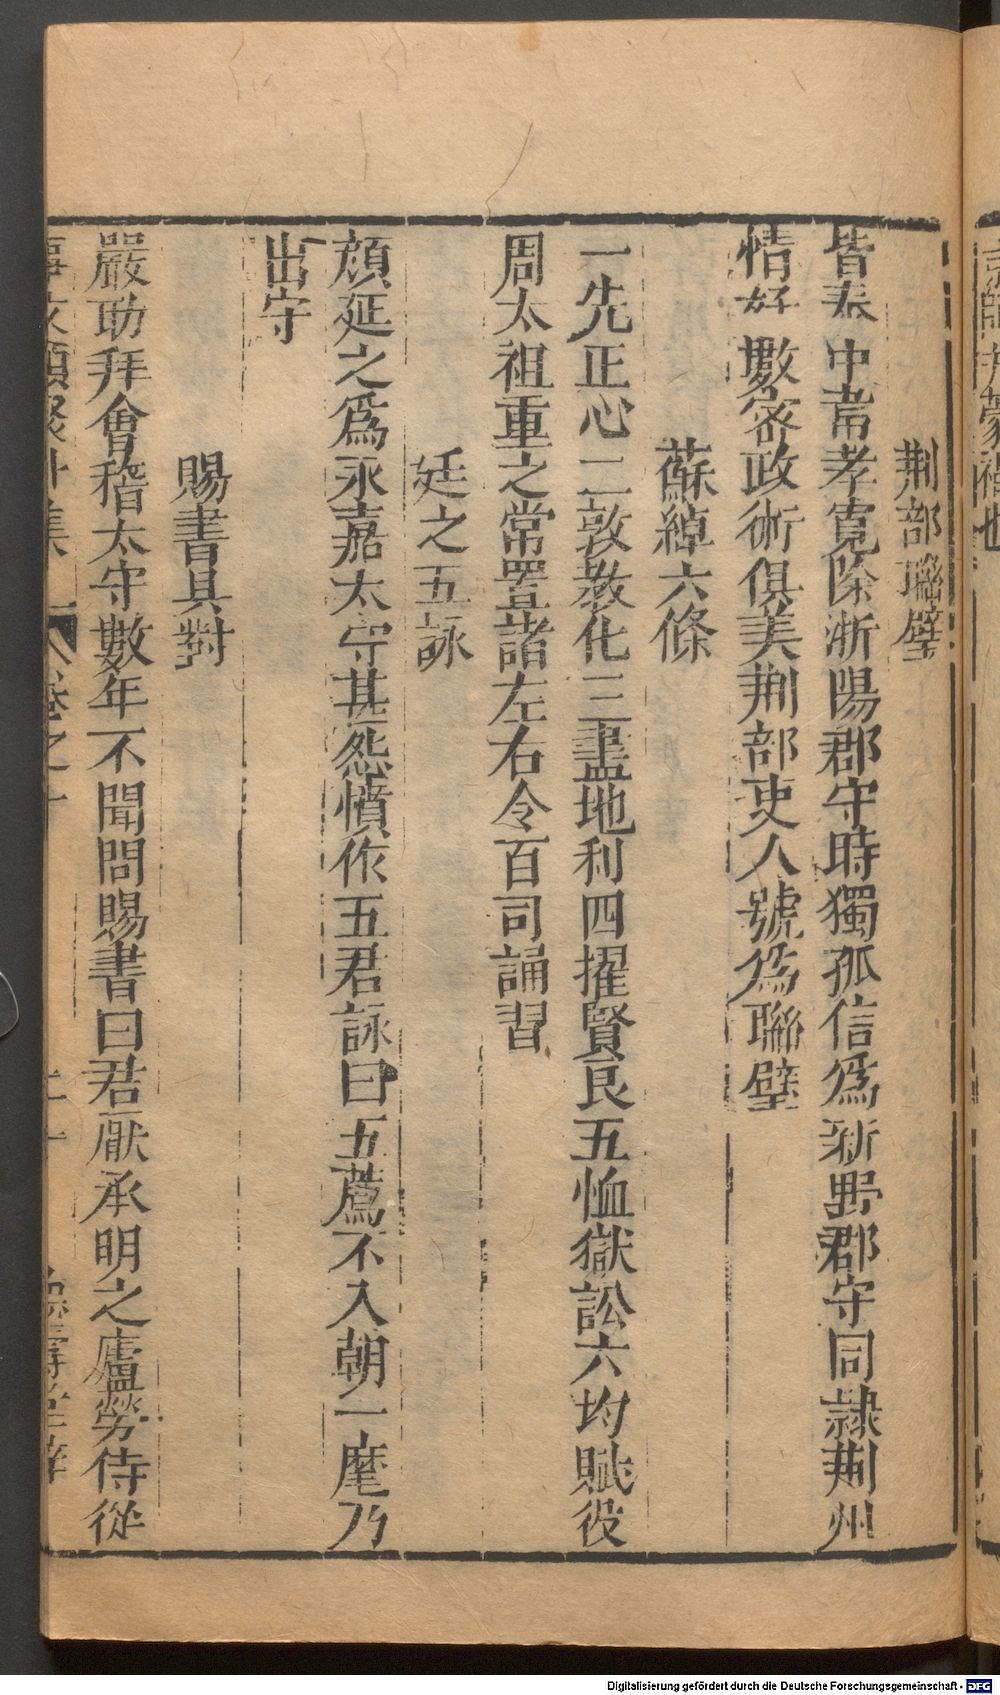 荆部聯璧
皆泰中常孝寛除淅陽郡守時獨孤信爲新野郡守同隷荆州
情好數密政術俱美荆部吏人號爲聯璧
蘇綽六條
一先正心二敦教化三盡地利四擢賢良五恤獄訟六均賦役
周太祖重之常置諸左右令百司誦習
延之五詠
顔延之爲永嘉太守甚怨憤作五君詠曰五薦不入朝一麾乃
出守
賜書具對
嚴助拜會稽太守數年不聞問賜書曰君厭承明之廬勞侍從
Digitalisierung gefördert durch die Deutsche Forschungsgemeinschaft - DFG